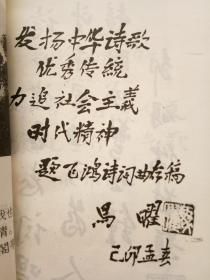 发扬中华诗歌
优秀传統
力追社会主義
时代精神
题飞鸿诗词曲存稿
馬曜
己卯孟春